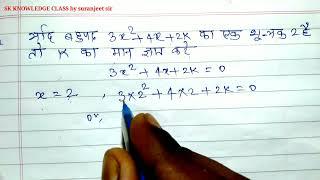 SK KNOWLEDGE CLASS by suranjeet sir
यदि बहुपद 3x²+4x+2K का एक शून्यक 2 है
तो K का मान ज्ञात करें
3x²+4x+2K=0
x=2, 3×2²+4×2+2K=0
or,